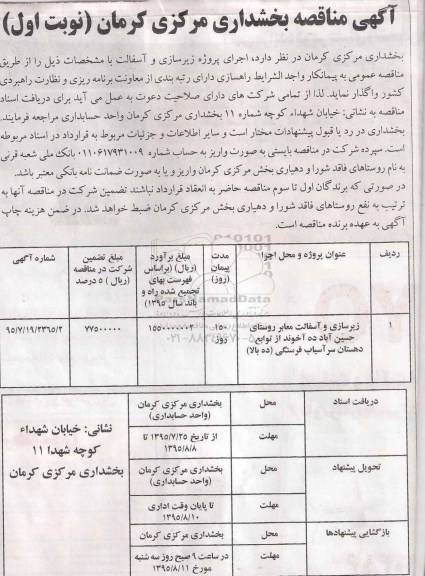 آگهی مناقصه بخشداری مرکزی کرمان (نوبت اول)
بخشداری مرکزی کرمان در نظر دارد، اجرای پروژه زیرسازی و آسفالت با مشخصات ذیل را از طریق
مناقصه عمومی به پیمانکار واجد الشرایط راهسازی دارای رتبه بندی از معاونت برنامه ریزی و نظارت راهبردی
کشور واگذار نماید. لذا از تمامی شرکت های دارای صلاحیت دعوت به عمل می آید برای دریافت اسناد
مناقصه به نشانی: خیابان شهداء کوچه شماره ۱۱ بخشداری مرکزی کرمان واحد حسابداری مراجعه فرمایند.
بخشداری در رد یا قبول پیشنهادات مختار است و سایر اطلاعات و جزئیات مربوط به قرارداد در اسناد مربوطه
است. سپرده شرکت در مناقصه بایستی به صورت واریز به حساب شماره ۰۱۱۰۶۱۷۹۳۱۰۰۹ بانک ملی شعبه قرنی
به نام روستاهای فاقد شورا و دهیاری بخش مرکزی کرمان واریز و یا به صورت ضمانت نامه بانکی معتبر باشد.
در صورتی که برندگان اول تا سوم مناقصه حاضر به انعقاد قرارداد نباشند تضمین شرکت در مناقصه آنها به
ترتیب به نفع روستاهای فاقد شورا و دهیاری بخش مرکزی کرمان ضبط خواهد شد. در ضمن هزینه چاپ
آگهی به عهده برنده مناقصه است.
ردیف
عنوان پروژه و محل اجرا
مدت پیمان (روز)
مبلغ برآورد (ریال) (براساس فهرست بهای تجمیع شده راه و باند سال ۱۳۹۵)
مبلغ تضمین شرکت در مناقصه (ریال) ۵ درصد
شماره آگهی
۱
زیرسازی و آسفالت معابر روستای
حسین آباد ده آخوند از توابع
دهستان سرآسیاب فرسنگی (ده بالا)
۱۵۰ روز
۷۷۵۰۰۰۰۰
۹۵/۷/۱۹/۲۳۹۵/۲
دریافت اسناد
محل
بخشداری مرکزی کرمان
(واحد حسابداری)
مهلت
از تاریخ ۱۳۹۵/۷/۲۵ تا
۱۳۹۵/۸/۸
تحویل پیشنهاد
محل
بخشداری مرکزی کرمان
(واحد حسابداری)
مهلت
تا پایان وقت اداری
۱۳۹۵/۸/۱۰
بازگشایی پیشنهادها
محل
بخشداری مرکزی کرمان
مهلت
در ساعت ۹ صبح روز سه شنبه
مورخ ۱۳۹۵/۸/۱۱
نشانی: خیابان شهداء
کوچه شهدا ۱۱
بخشداری مرکزی کرمان